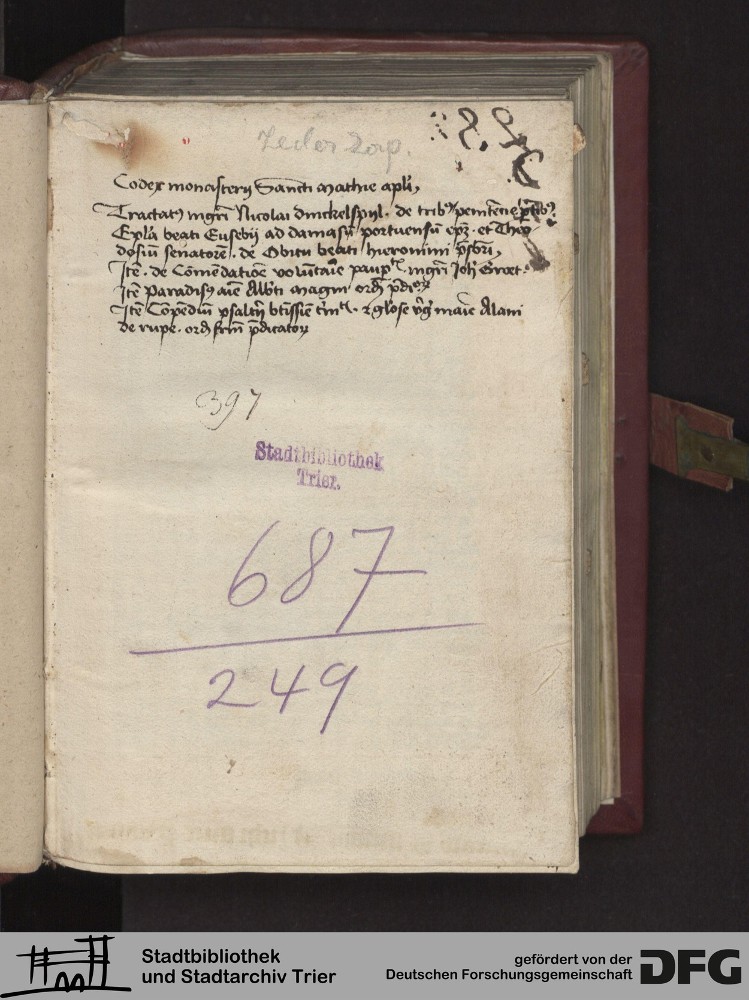 Codex monasterij Sancti Mathie apli,
Tractat9 mgri Nicolai dinckelspul. de trib9 penitēcie ptib9
Epla beati Eusebij ad damasū portuensū epm. et Theo
dosiū senatorē. de Obitu beati hieronimi psbri,
Itē. de Cōmēdatiōe volūtarie paup mgri Joh Groet.
Itē Paradis9 aīe Albti magni ord pdic
Itē Cōpēdiū psaltrij btissīe tinit. 2 glose vgis marie Alani
de rupe. ord frm pdicator
397
Stadtbibliothek
Trier.
687
249
Stadtbibliothek
und Stadtarchiv Trier
gefördert von der
Deutschen Forschungsgemeinschaft
DFG